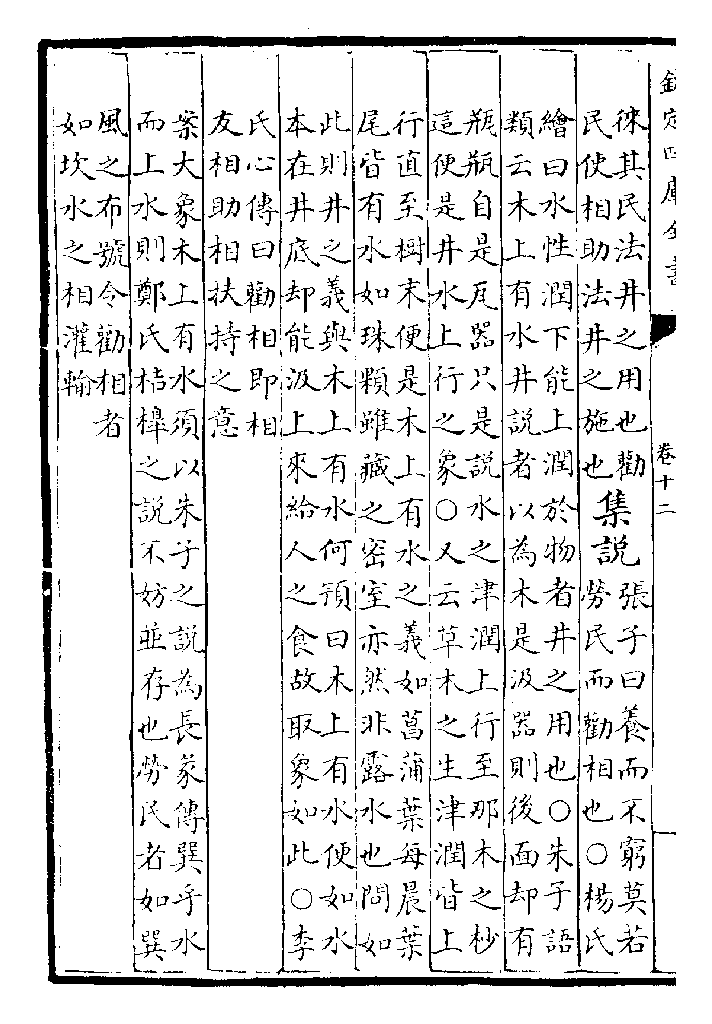 欽定四庫全書 卷十二
徠其民法井之用也勸
民使相助法井之施也
集說
張子曰養而不窮莫若
勞民而勸相也○楊氏
繪曰水性潤下能上潤於物者井之用也○朱子語
類云木上有水井說者以為木是汲器則後面却有
瓶瓶自是瓦器只是說水之津潤上行至那木之杪
這便是井水上行之象○又云草木之生津潤皆上
行直至樹末便是木上有水之義如菖蒲葉每晨葉
尾皆有水如珠顆雖藏之密室亦然非露水也問如
此則井之義與木上有水何預曰木上有水便如水
本在井底却能汲上來給人之食故取象如此○李
氏心傳曰勸相即相
友相助相扶持之意
案大象木上有水須以朱子之說為長彖傳巽乎水
而上水則鄭氏桔槹之說不妨並存也勞民者如巽
風之布號令勸相者
如坎水之相灌輸